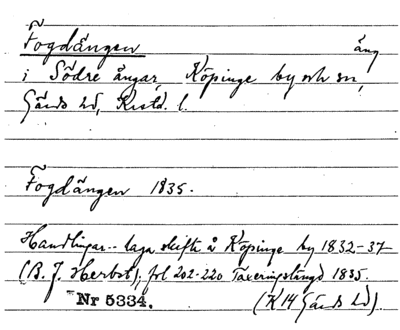 Fogdängen äng
i Södre ångar, Köpinge by och sn,
Gärds hd, Kristd. l.
Fogdängen 1835.
Handlingar.. laga skifte å Köpinge by 1832-37
(B. J. Herbst), fol 202-220 Taxeringslängd 1835.
Nr 5334. (K14 Gärds hd).